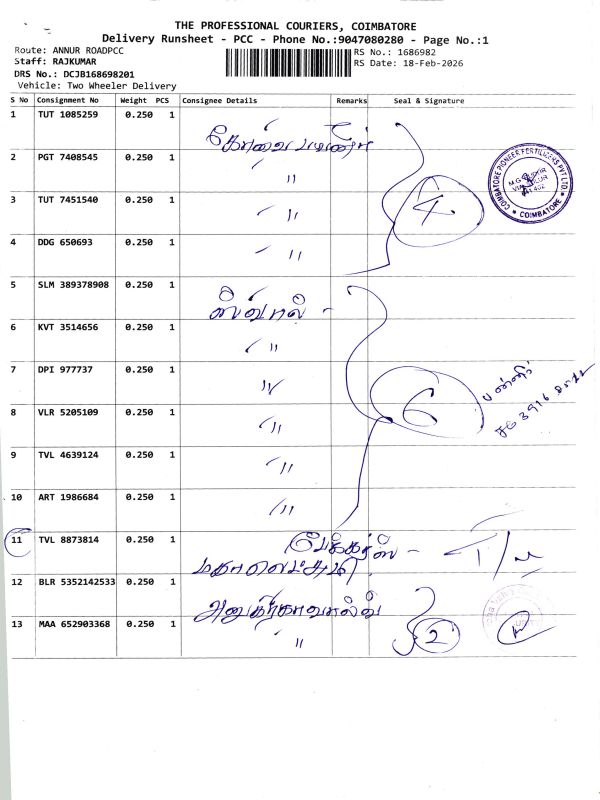 THE PROFESSIONAL COURIERS, COIMBATORE
Delivery Runsheet - PCC - Phone No.:9047080280 - Page No.:1
Route: ANNUR ROADPCC
Staff: RAJKUMAR
DRS No.: DCJB168698201
Vehicle: Two Wheeler Delivery
RS No.: 1686982
RS Date: 18-Feb-2026
S No Consignment No Weight PCS Consignee Details Remarks Seal & Signature
1 TUT 1085259 0.250 1 கோவை
2 PGT 7408545 0.250 1 〃
3 TUT 7451540 0.250 1 〃 4
4 DDG 650693 0.250 1 〃
COIMBATORE PIONEER FERTILIZERS PVT LTD. COIMBATORE
5 SLM 389378908 0.250 1
6 KVT 3514656 0.250 1 〃
7 DPI 977737 0.250 1 〃
8 VLR 5205109 0.250 1 〃 6
9 TVL 4639124 0.250 1 〃
10 ART 1986684 0.250 1 〃
11 TVL 8873814 0.250 1
12 BLR 5352142533 0.250 1
13 MAA 652903368 0.250 1 〃 2